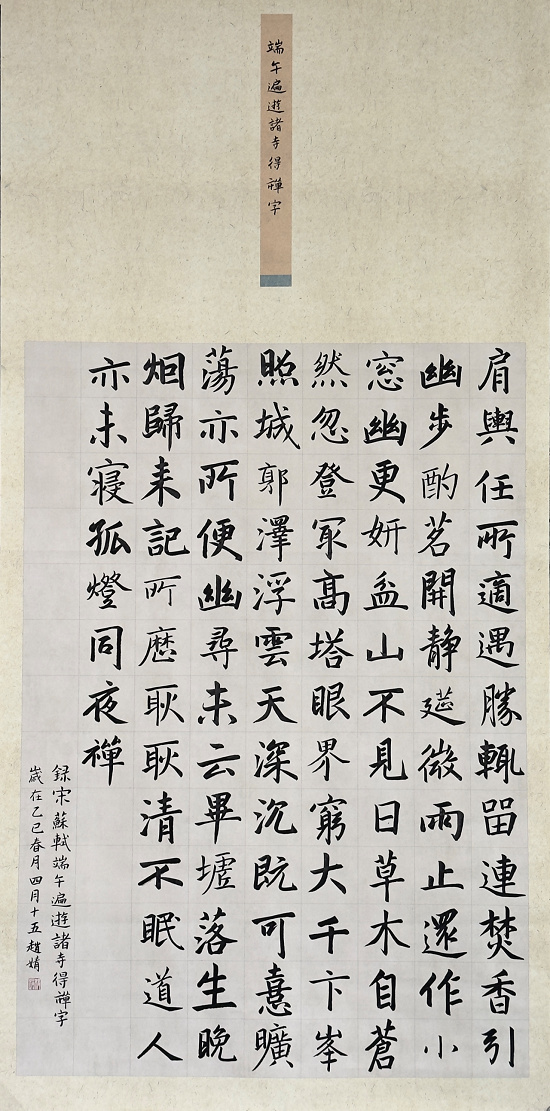 端午遍遊諸寺得禪字
肩輿任所適遇勝輒留連焚香引
幽步酌茗開靜筵微雨止還作小
窓幽更妍盆山不見日草木自蒼
然忽登冣高塔眼界窮大千卞峯
照城郭澤浮雲天深沉既可憙曠
蕩亦所便幽尋未云畢墟落生晚
烟歸来記所歷耿耿清不眠道人
亦未寢孤燈同夜禪
録宋蘇軾端午遍遊諸寺得禪字
歲在乙巳春月四月十五趙婧